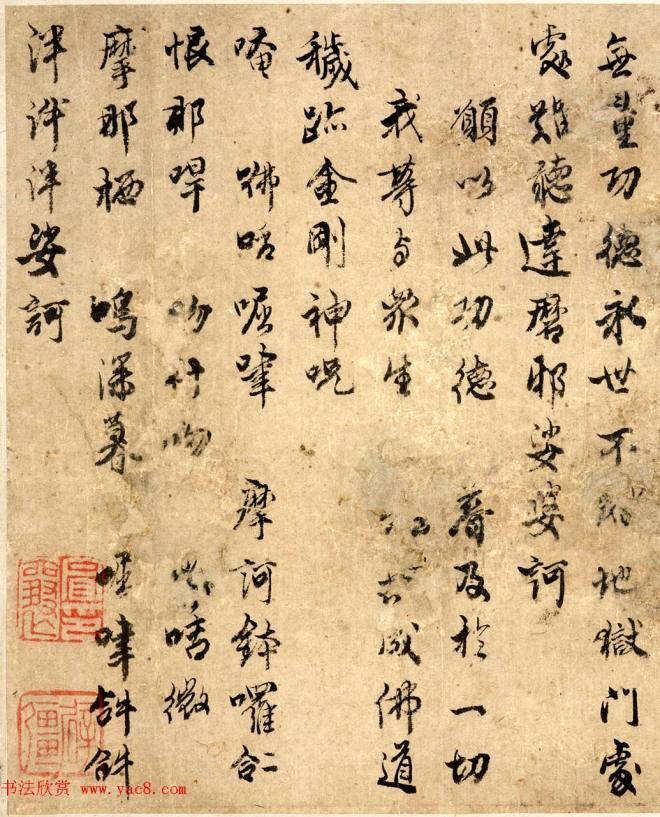 無量功德永世不地獄門處
處難聽達磨耶娑婆訶
願以此功德 普及於一切
我等与衆生 皆共成佛道
穢跡金剛神呪
唵 咈咶啒㖕 摩訶鉢囉合二
恨那㖕 吻什吻 咭微
摩那栖 嗚深暮 㖕
泮泮泮娑訶
书法欣赏 www.yac8.com